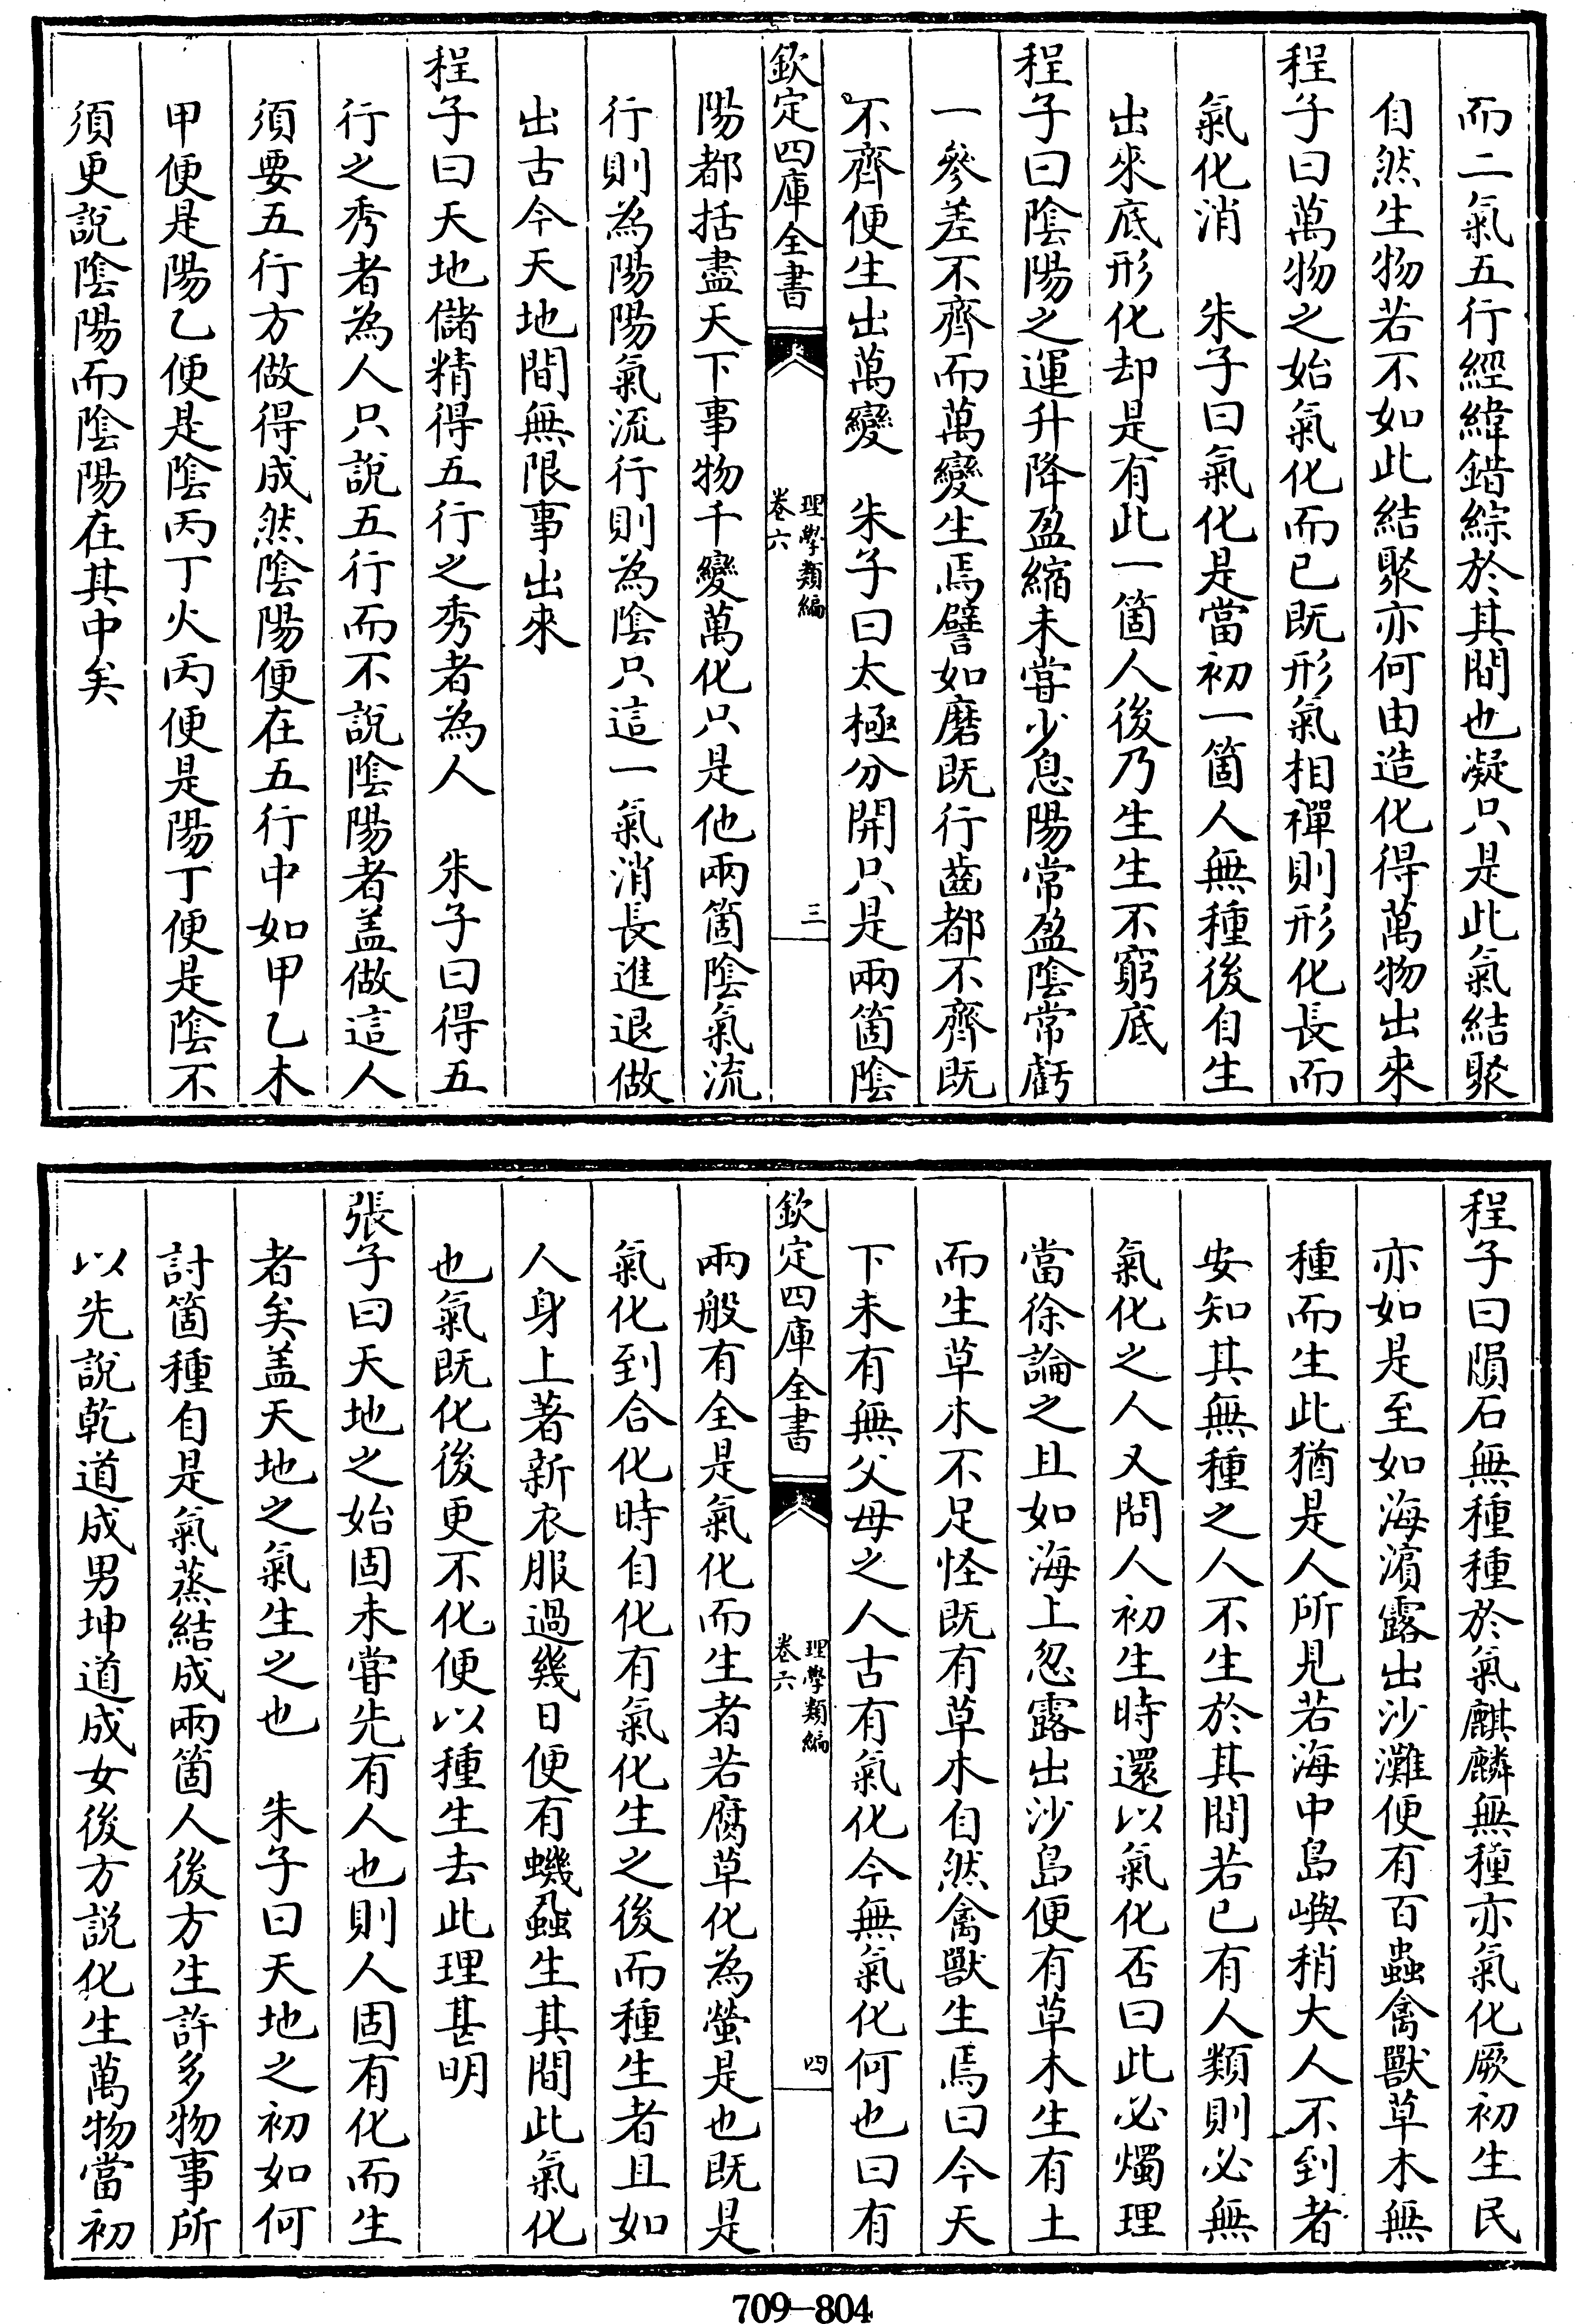 而二氣五行經緯錯綜於其間也凝只是此氣結聚
自然生物若不如此結聚亦何由造化得萬物出來
程子曰萬物之始氣化而已既形氣相禪則形化長而
氣化消　朱子曰氣化是當初一箇人無種後自生
出來底形化却是有此一箇人後乃生生不窮底
程子曰陰陽之運升降盈縮未嘗少息陽常盈陰常虧
一參差不齊而萬變生焉譬如磨既行齒都不齊既
不齊便生出萬變　朱子曰太極分開只是兩箇陰
欽定四庫全書
理學類編
卷六
三
陽都括盡天下事物千變萬化只是他兩箇陰氣流
行則為陽陽氣流行則為陰只這一氣消長進退做
出古今天地間無限事出來
程子曰天地儲精得五行之秀者為人　朱子曰得五
行之秀者為人只說五行而不說陰陽者盖做這人
須要五行方做得成然陰陽便在五行中如甲乙木
甲便是陽乙便是陰丙丁火丙便是陽丁便是陰不
須更說陰陽而陰陽在其中矣
程子曰隕石無種種於氣麒麟無種亦氣化厥初生民
亦如是至如海濱露出沙灘便有百蟲禽獸草木無
種而生此猶是人所見若海中島嶼稍大人不到者
安知其無種之人不生於其間若已有人類則必無
氣化之人又問人初生時還以氣化否曰此必燭理
當徐論之且如海上忽露出沙島便有草木生有土
而生草木不足怪既有草木自然禽獸生焉曰今天
下未有無父母之人古有氣化今無氣化何也曰有
欽定四庫全書
理學類編
卷六
四
兩般有全是氣化而生者若腐草化為螢是也既是
氣化到合化時自化有氣化生之後而種生者且如
人身上著新衣服過幾日便有蟣蝨生其間此氣化
也氣既化後更不化便以種生去此理甚明
張子曰天地之始固未嘗先有人也則人固有化而生
者矣盖天地之氣生之也　朱子曰天地之初如何
討箇種自是氣蒸結成兩箇人後方生許多物事所
以先說乾道成男坤道成女後方說化生萬物當初
709—804